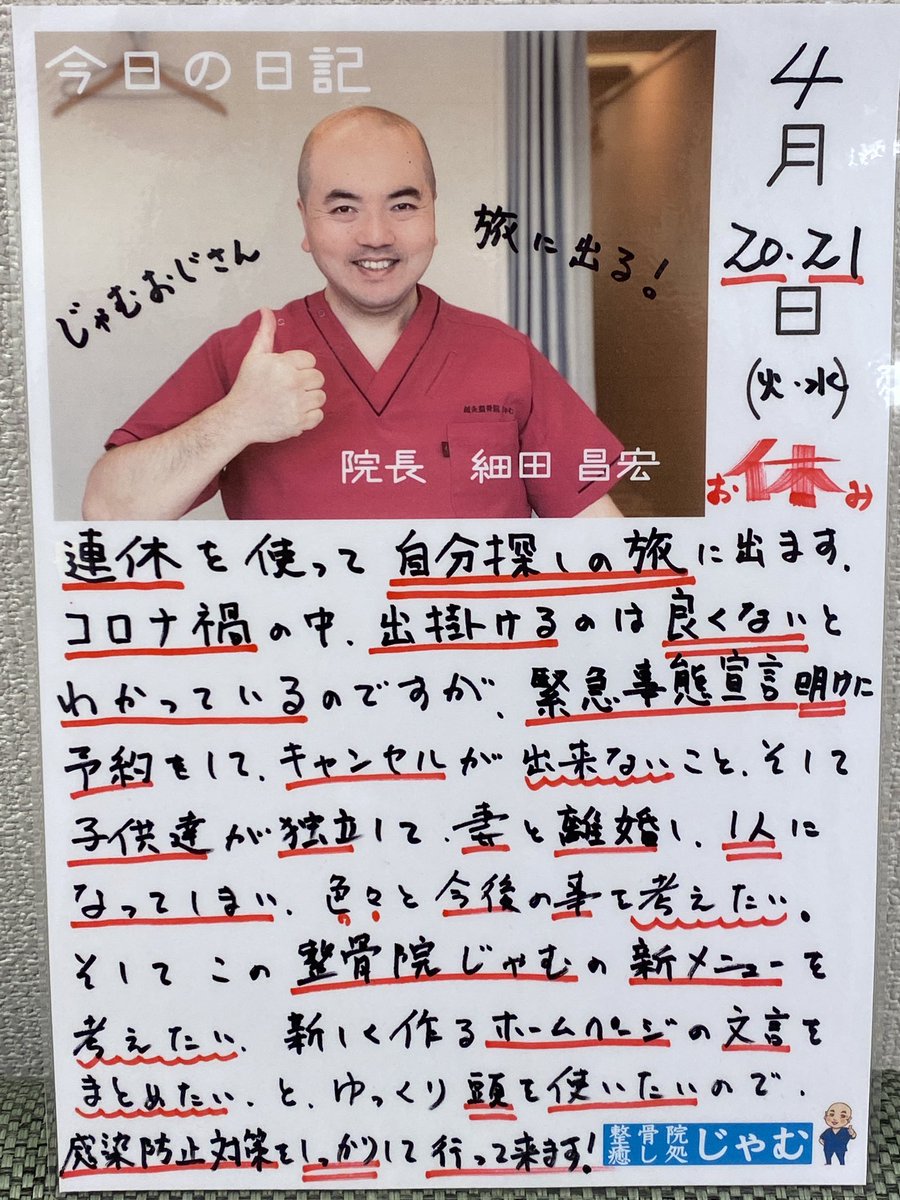 今日の日記
じゃむおじさん
旅に出る!
鍼灸整骨院 じゃむ
院長 細田 昌宏
4月
20.21
日
(火・水)
お休み
連休を使って自分探しの旅に出ます.
コロナ禍の中、出掛けるのは良くないと
わかっているのですが、緊急事態宣言明けに
予約をして、キャンセルが出来ないこと、そして
子供達が独立して、妻と離婚し、1人に
なってしまい、色々と今後の事を考えたい。
そしてこの整骨院じゃむの新メニューを
考えたい、新しく作るホームページの文言を
まとめたい、と、ゆっくり頭を使いたいので、
感染防止対策をしっかりして行って来ます!
整骨院
癒し処
じゃむ